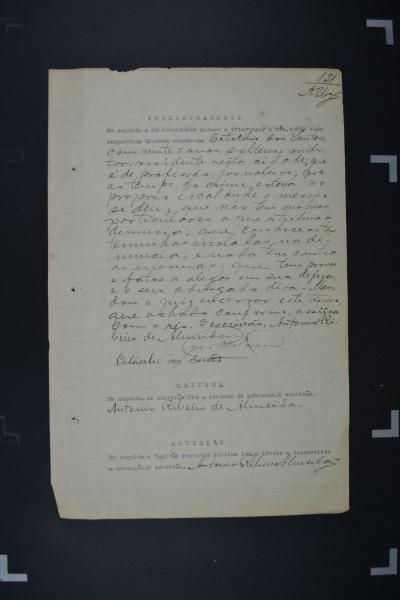 121
A. Silva
INTERROGATORIO
Em seguida o Dr Presidente passou a interrogar o réo, tendo este
respondido dizendo chamar-se Octacilio dos Santos
com vinte e annos, solteiro,
residente nesta cidade; que
é de profissão, jornaleiro; que
ao tempo do crime, estava no
proprio local onde o mesmo
se deu; que não tem motivos
particulares a que attribua
denuncia; que conhece as te
temunhas arroladas na de
nuncia, e nada tem contra
as mesmas; que tem provas
e factos a allegar em sua defeza,
e o seu advogado dirá. Man
dou o juiz encerrar este termo,
que achado conforme, assigna
com o réo. O escrivão, Antonio Ri
beiro de Almeida.
Octacilio dos Santos
LEITURA
Em seguida, eu escrivão fiz a leitura do processo. O escrivão,
Antonio Ribeiro de Almeida.
ACCUSAÇÃO
Em seguida, o Capitão Promotor Publico leu o libello e desenvolveu
a accusação. O escrivão, Antonio Ribeiro Almeida